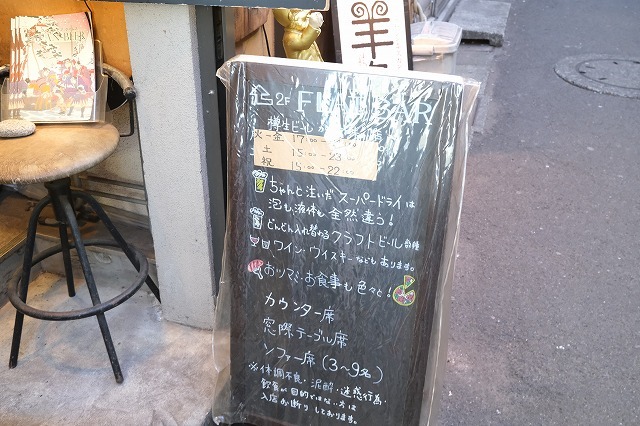 BEER
羊
2F FLAT BAR
樽生ビール
火-金 17:00-
土 15:00-23:00
祝 15:00-22:00
ちゃんと注いだスーパードライは
泡も液体も全然違う!
どんどん入れ替わるクラフトビール各種
ワイン・ウイスキーなどもあります。
おツマミ・お食事も色々と!
カウンター席
窓際テーブル席
ソファー席(3~9名)
※体調不良・泥酔・迷惑行為・
飲食が目的ではない方は
入店お断りしております。